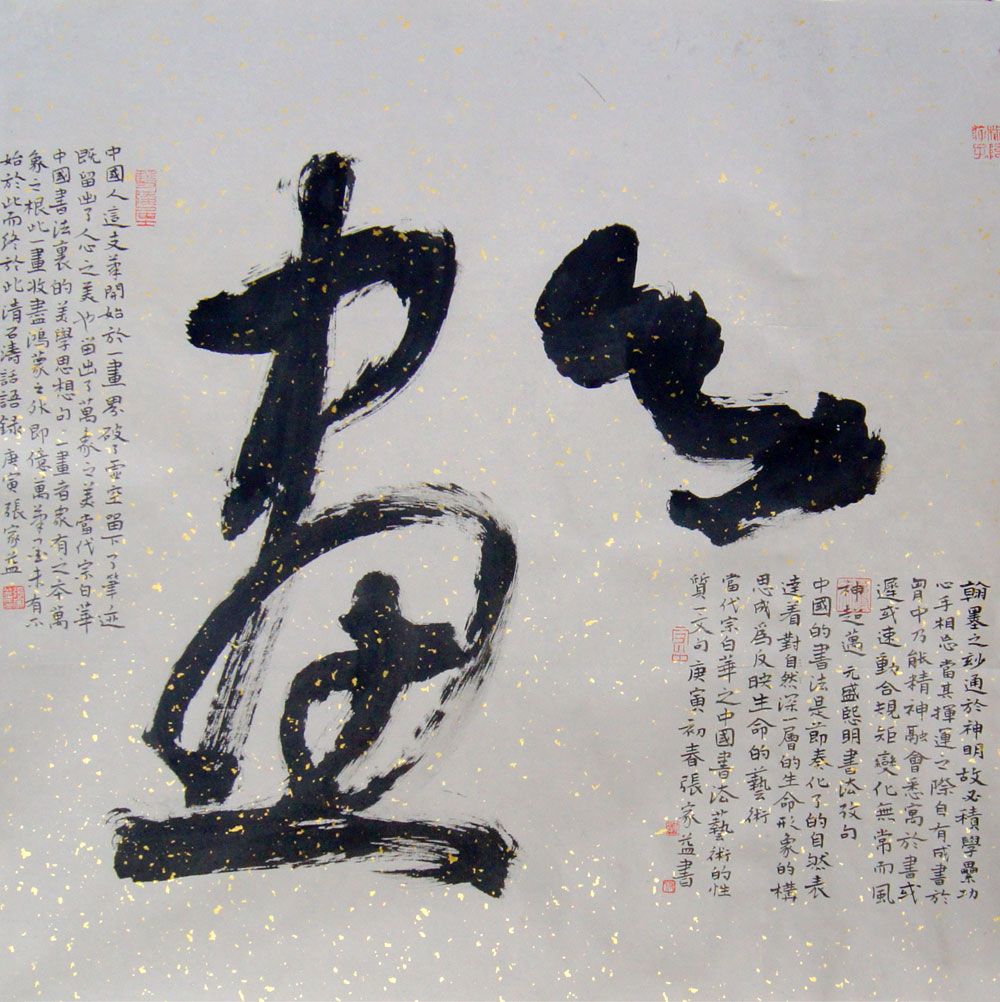 一畫
翰墨之玅通於神明故必積學纍功
心手相忘當其揮運之際自有成書於
胷中乃能精神融會悉寓於書或
遲或速動合規矩變化無常而風
神超邁 元盛熙明書法攷句
中國的書法是節奏化了的自然表
達着對自然深一層的生命形象的構
思成爲反映生命的藝術
當代宗白華之中國書法藝術的性
質一文句 庚寅初春張家益書
中國人這支筆開始於一畫界破了虛空留下了筆迹
既留出了人心之美也留出了萬象之美當代宗白華
中國書法裏的美學思想句 一畫者衆有之本萬
象之根此一畫收盡鴻蒙之外即億萬筆墨未有不
始於此而終於此清石濤話語録 庚寅張家益